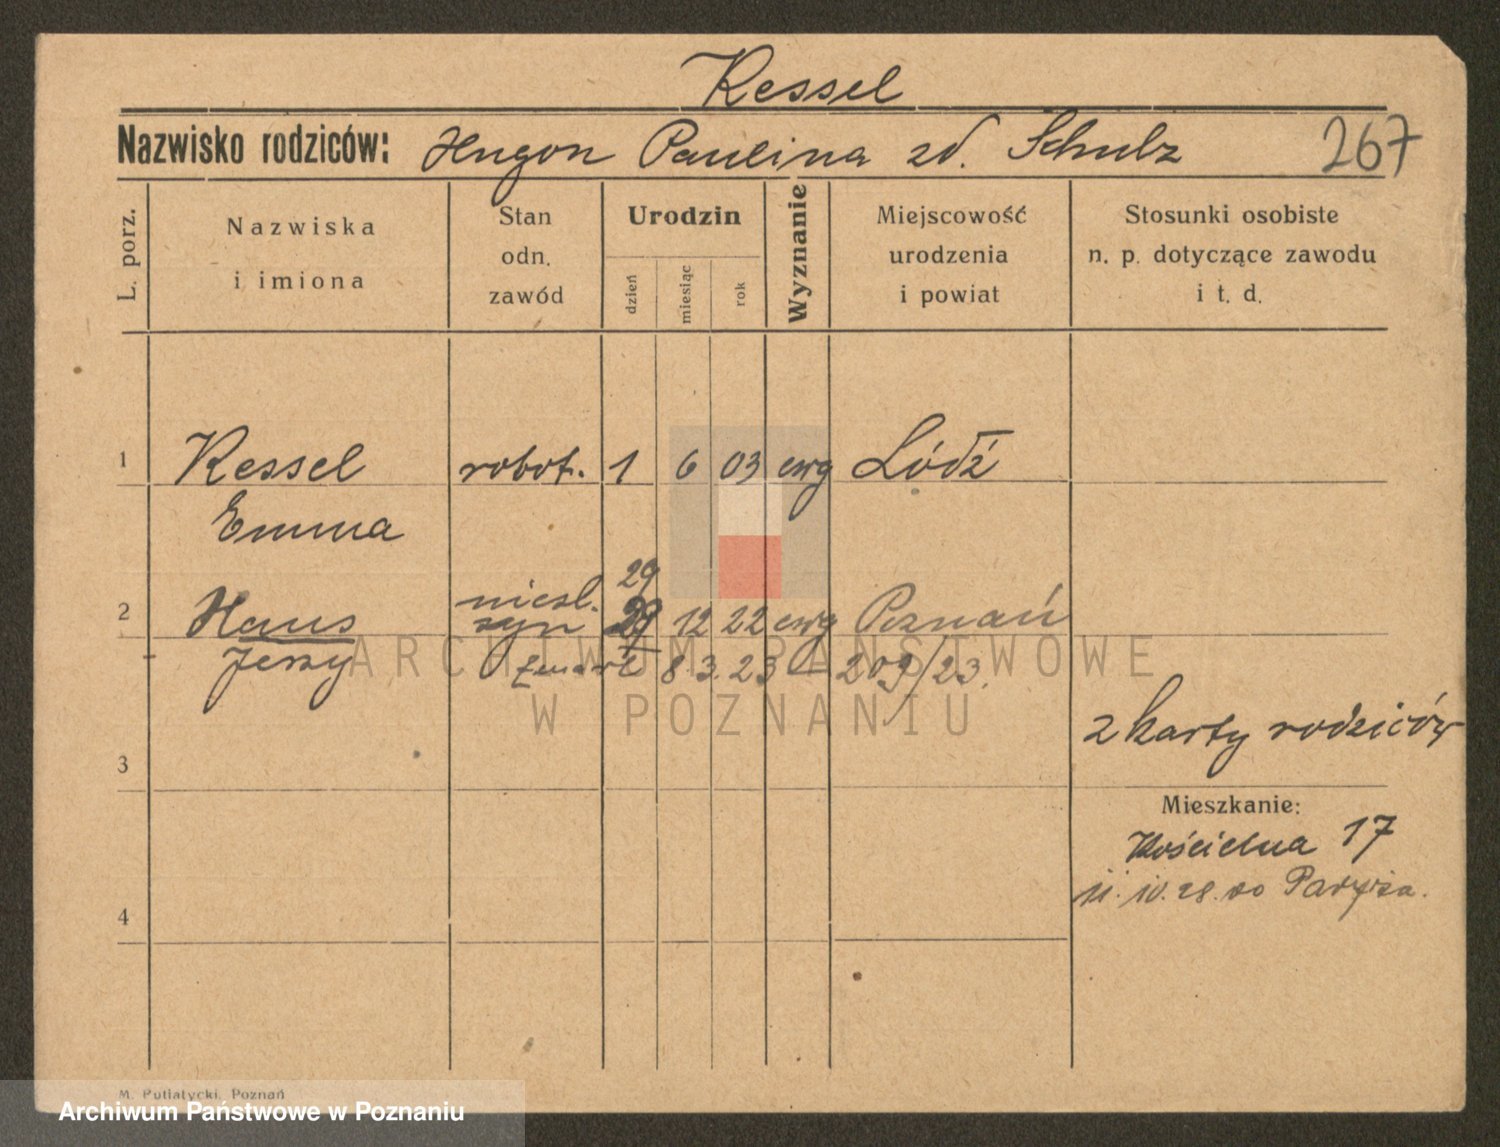 Kessel
Nazwisko rodziców: Hugon Paulina zd. Schulz 267
L. porz.
Nazwiska i imiona
Stan odn. zawód
Urodzin
dzień miesiąc rok
Wyznanie
Miejscowość urodzenia i powiat
Stosunki osobiste n. p. dotyczące zawodu i t. d.
1 Kessel robot. 1 6 03 ewg Łódź
Emma
29
2 Hans nieśl. syn 29 12 22 ewg Poznań
Jerzy zmarł 8.3.23 – 209/23.
z karty rodziców
3
Mieszkanie:
Kościelna 17
11. IV. 28. do Paryża.
4
ARCHIWUM PAŃSTWOWE
W POZNANIU
M. Putiatycki, Poznań
Archiwum Państwowe w Poznaniu